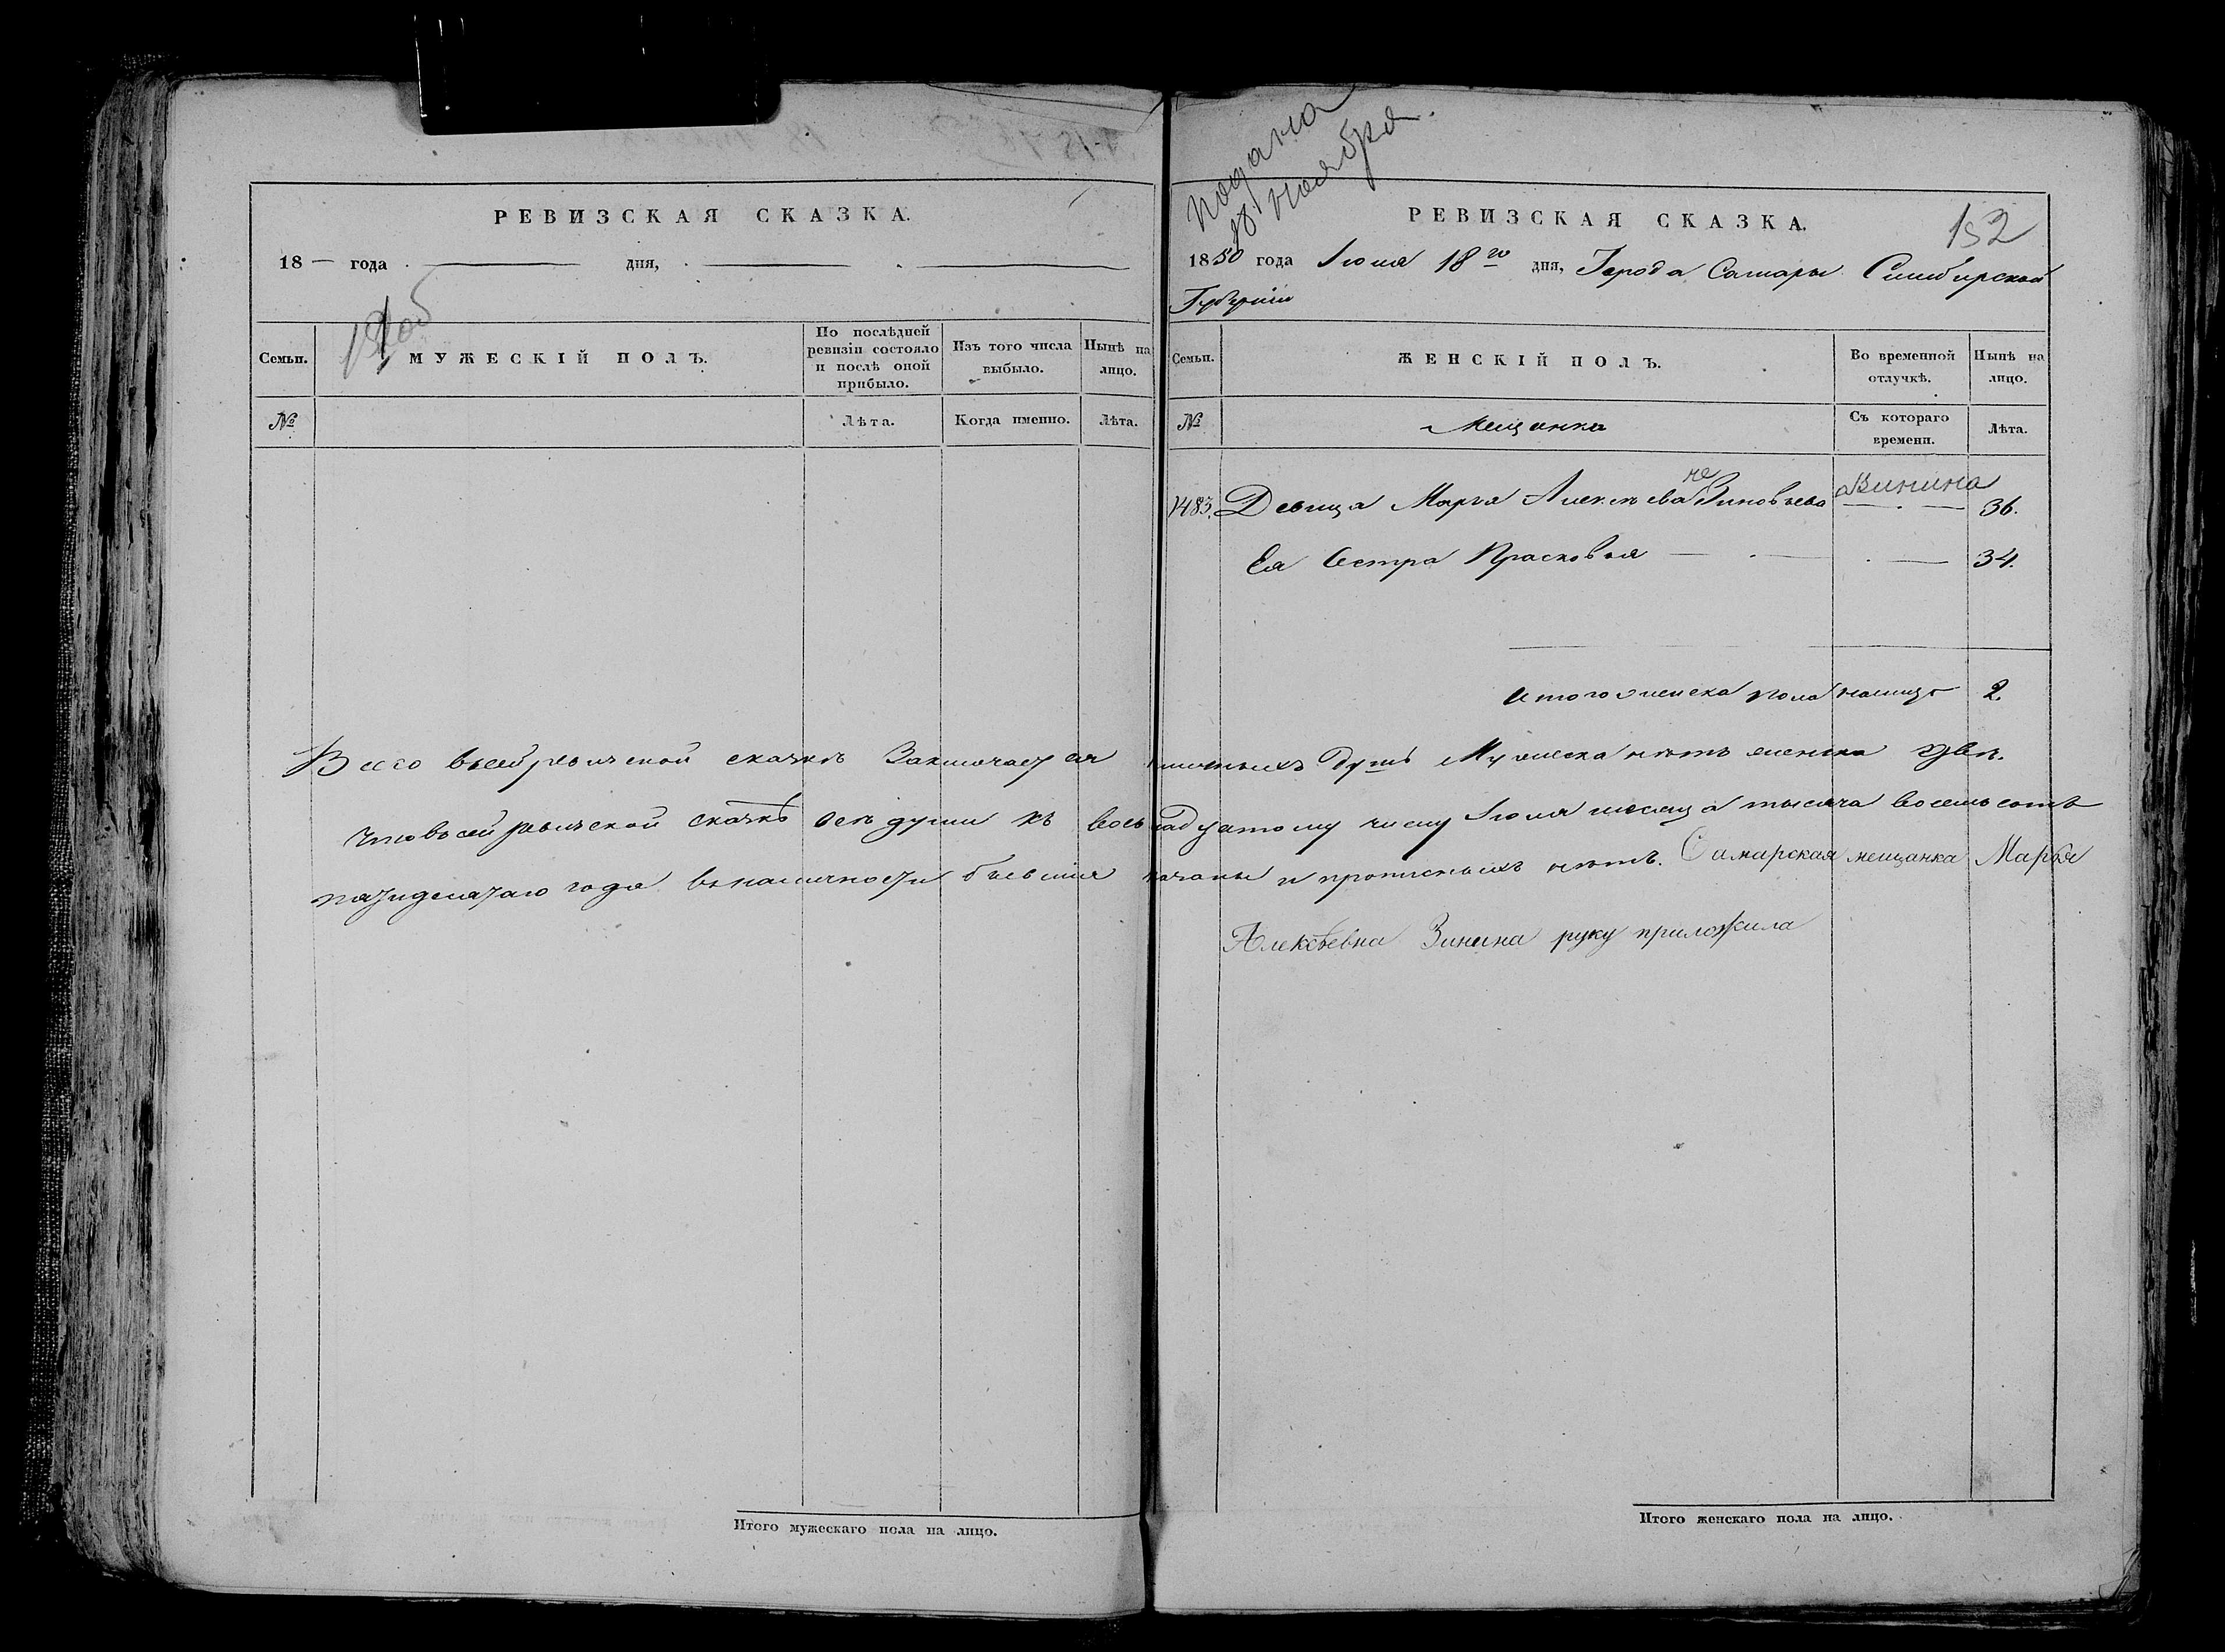 РЕВИЗСКАЯ СКАЗКА.
18 — года дня,
Семьи.
МУЖЕСКІЙ ПОЛЪ.
По послѣдней ревизіи состояло и послѣ оной прибыло.
Изъ того числа выбыло.
Нынѣ на лицо.
№
Лѣта.
Когда именно.
Лѣта.
подана
18 ноября.
РЕВИЗСКАЯ СКАЗКА.
152
1850 года Іюля 18го дня, Города Самары Симбирской
Губерніи
Семьи.
ЖЕНСКІЙ ПОЛЪ.
Во временной отлучкѣ.
Нынѣ на лицо.
№
Мещанка
Съ котораго времени.
Лѣта.
не а Зинина
1483. Девица Марья Алексѣева Зиновьева 36.
Ея Сестра Прасковья 34.
итого женска пола налицо 2.
Всего всей ревизской сказкѣ Заключается душъ Мужеска нѣтъ женска двѣ.
что въ сей ревизской сказкѣ всѣ души къ числу Іюля месяца тысяча восемьсотъ
пятидесятаго года вналичности бывшия и прописныхъ нѣтъ. Самарская мещанка Марья
Алексѣевна Зинина руку приложила
Итого мужескаго пола на лицо.
Итого женскаго пола на лицо.